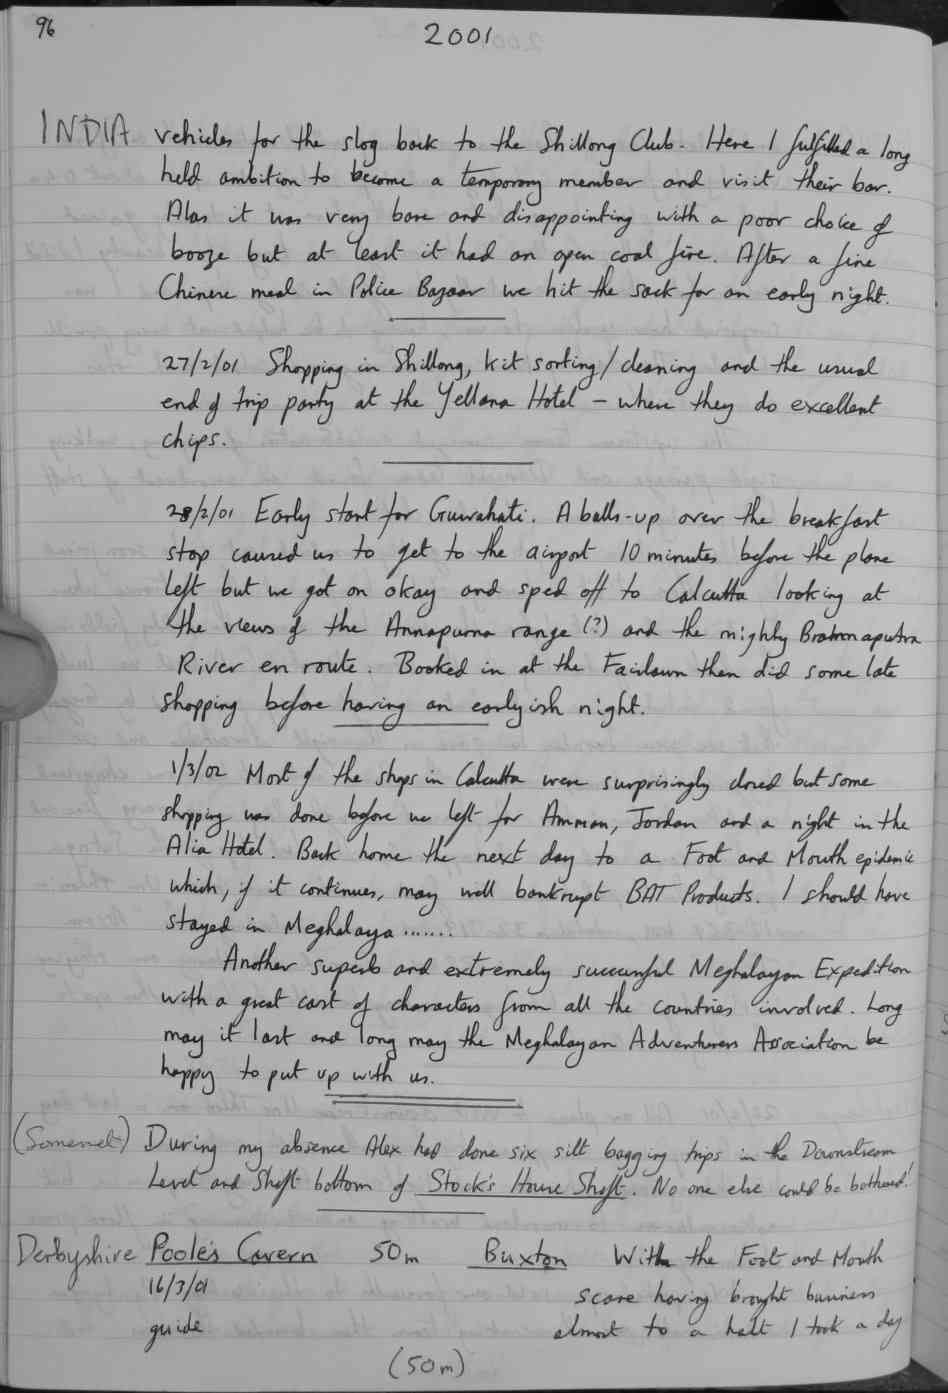 96
2001
INDIA vehicles for the slog back to the Shillong Club. Here I fulfilled a long
held ambition to become a temporary member and visit their bar.
Alas it was very bare and disappointing with a poor choice of
booze but at least it had an open coal fire. After a fine
Chinese meal in Police Bazaar we hit the sack for an early night.
27/2/01 Shopping in Shillong, kit sorting/cleaning and the usual
end of trip party at the Yellana Hotel – where they do excellent
chips.
28/2/01 Early start for Guwahati. A balls-up over the breakfast
stop caused us to get to the airport 10 minutes before the plane
left but we got on okay and sped off to Calcutta looking at
the views of the Annapurna range (?) and the mighty Bramaputra
River en route. Booked in at the Fairlawn then did some late
shopping before having an earlyish night.
1/3/02 Most of the shops in Calcutta were surprisingly closed but some
shopping was done before we left for Amman, Jordan and a night in the
Alia Hotel. Back home the next day to a Foot and Mouth epidemic
which, if it continues, may well bankrupt BAT Products. I should have
stayed in Meghalaya .......
Another superb and extremely successful Meghalayan Expedition
with a great cast of characters from all the countries involved. Long
may it last and long may the Meghalayan Adventurers Association be
happy to put up with us.
(Somerset) During my absence Alex had done six silt bagging trips in the Downstream
Level and Shaft bottom of Stock's House Shaft. No one else could be bothered!
Derbyshire Poole's Cavern 50m Buxton With the Foot and Mouth
16/3/01 scare having brought business
guide almost to a halt I took a day
(50m)